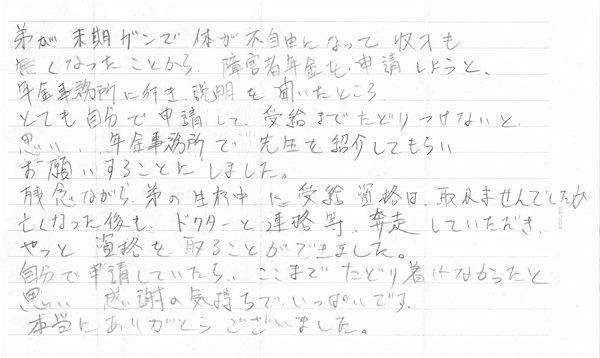 弟が末期ガンで体が不自由になって収入も
無くなったことから、障害者年金を申請しようと、
年金事務所に行き説明を聞いたところ、
とても自分で申請して、受給までたどりつけないと
思い、年金事務所で先生を紹介してもらい
お願いすることにしました。
残念ながら、弟の生存中に受給資格は、取れませんでしたが
亡くなった後も、ドクターと連絡等、奔走していただき、
やっと資格を取ることができました。
自分で申請していたら、ここまでたどり着けなかったと
思い、感謝の気持ちで、いっぱいです。
本当にありがとうございました。